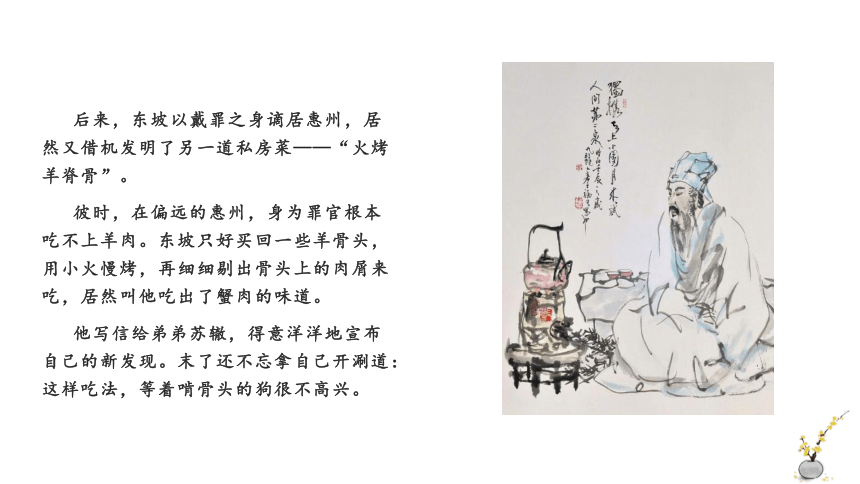 后来，东坡以戴罪之身谪居惠州，居
然又借机发明了另一道私房菜——“火烤
羊脊骨”。
彼时，在偏远的惠州，身为罪官根本
吃不上羊肉。东坡只好买回一些羊骨头，
用小火慢烤，再细细剔出骨头上的肉屑来
吃，居然叫他吃出了蟹肉的味道。
他写信给弟弟苏辙，得意洋洋地宣布
自己的新发现。末了还不忘拿自己开涮道：
这样吃法，等着啃骨头的狗很不高兴。
独携天上小团月来试
人间第二泉